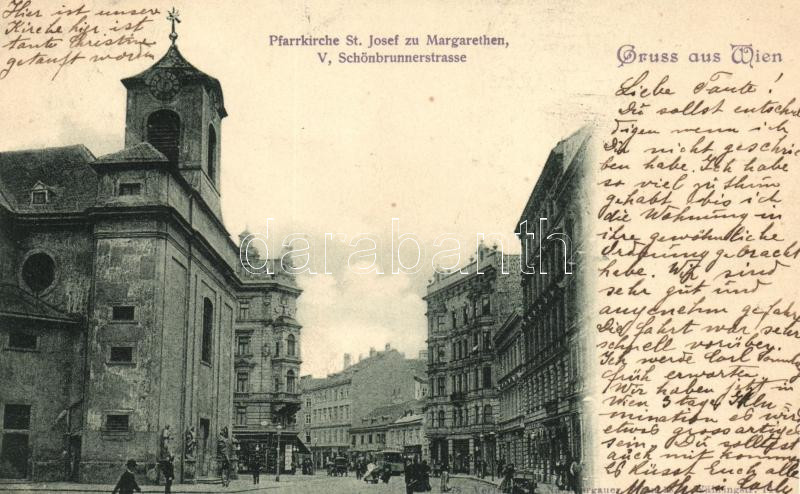 Hier ist unsere
Kirche hir ist
tante Christine
getauft worden
Pfarrkirche St. Josef zu Margarethen,
V, Schönbrunnerstrasse
Gruss aus Wien
Liebe Tante!
Du sollst entschul
digen wenn ich
Dir nicht geschrie
ben habe. Ich habe
so viel zu thum
gehabt bis ich
die Wohnung in
ihre gewöhnliche
Ordnung gebracht
habe. Wir sind
sehr gut und
angenehm gefahr
Die fahrt war sehr
schnell vorüber.
Ich werde Carl
früh erwarten,
Wir haben jetz in
Wien 3 tage Illu
mination es wir
etwas grossartiges
sein. Du solltest
auch mit komm
Es Küsst Euch alle
darabanth.com